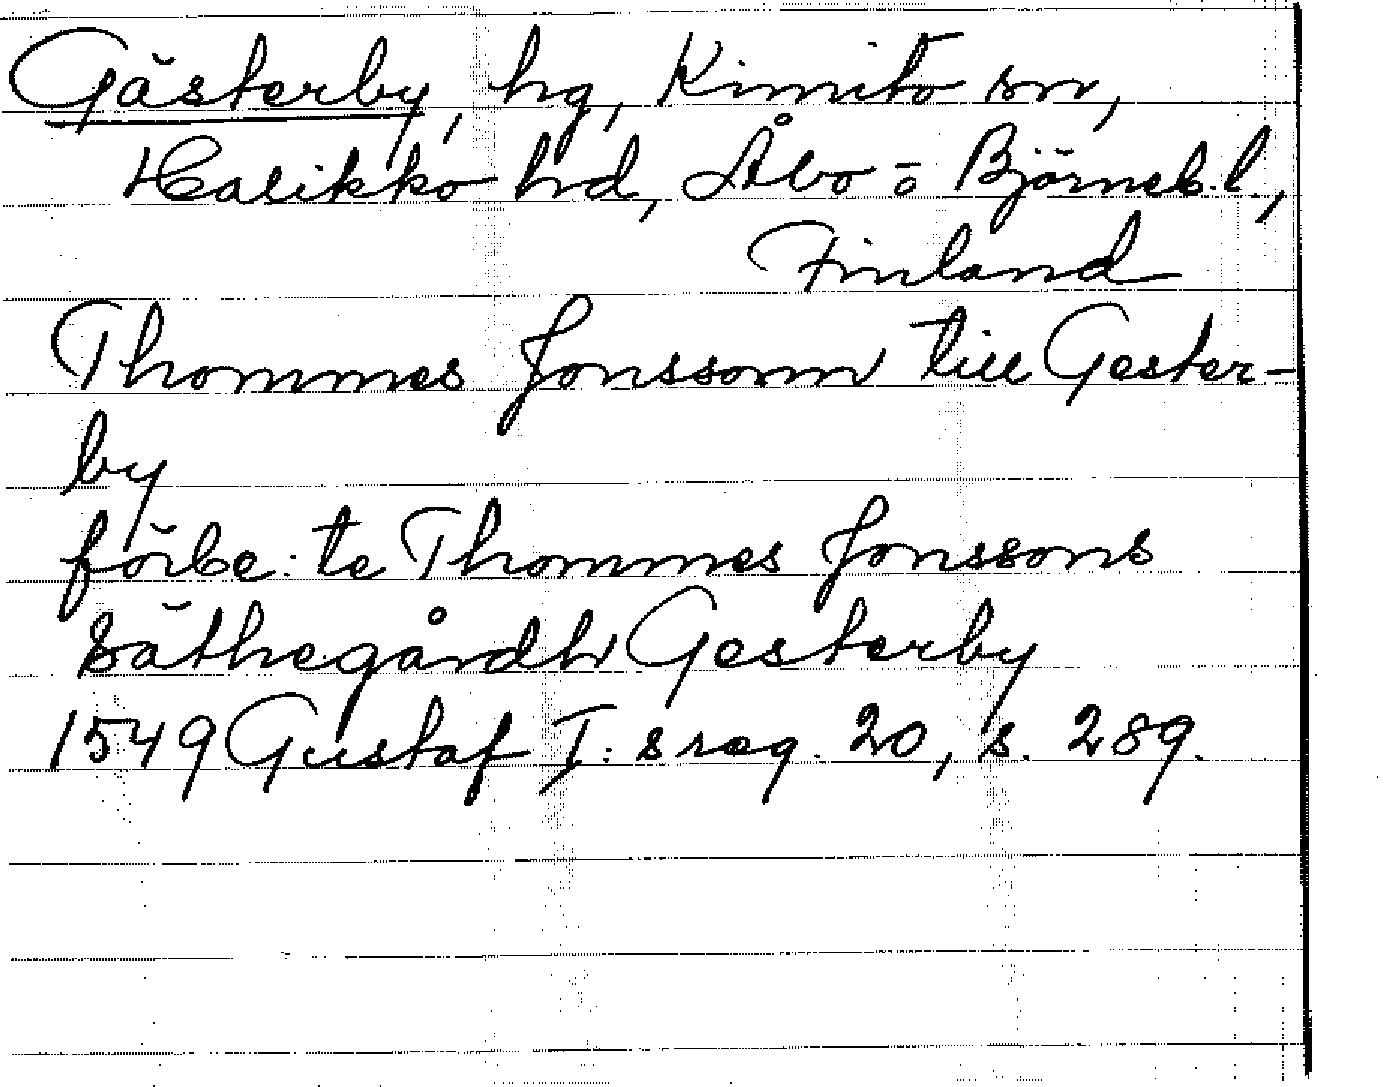 Gästerby, hg, Kimito sn,
Halikko hd, Åbo- o Björneb. l.,
Finland
Thommes Jonssonn till Gester-
by
förbe: te Thommes Jonssons
säthegårdh Gesterby
1549 Gustaf I: s reg. 20, s. 289.